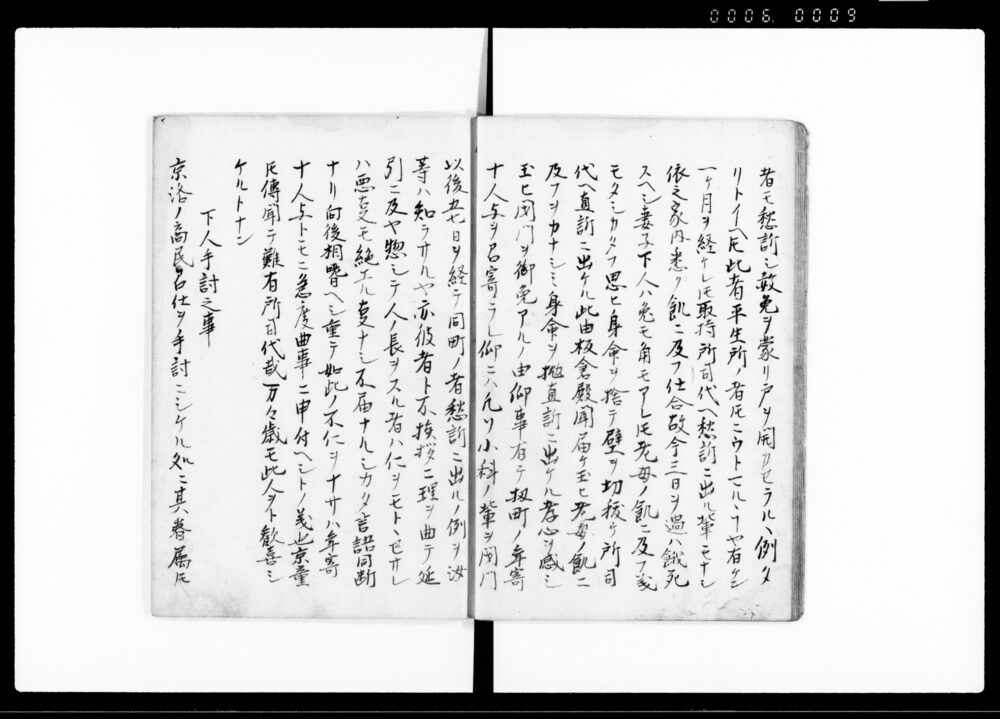 0006.0009
者モ愁訴シ赦免ヲ蒙リ戸ヲ開カセラルヽ例タ
リトイヘ𪜈此者平生所ノ者𪜈ニウトマルヽヤ有ケン
一ヶ月ヲ経ケレ𪜈取持所司代ヘ愁訴ニ出ル輩モナシ
依之家内悉ク飢ニ及フ仕合故今三日ヲ過ハ餓死
スヘシ妻子下人ハ兎モ角モアレ𪜈老母ノ飢ニ及フ義
モタシカタク思ヒ身命ヲ捨テ壁ヲ切抜ケ所司
代ヘ直訴ニ出ケル此由板倉殿聞届ケ玉ヒ老母ノ飢ニ
及フヲカナシミ身命ヲ抛直訴ニ出ケル孝心ヲ感シ
玉ヒ閉門ヲ御免アルノ由仰事有テ扨町ノ年寄
十人与ヲ召寄ラレ仰ニハ凡ソ小科ノ輩ヲ閉門
以後五七日ヲ経テ同町ノ者愁訴ニ出ルノ例ヲ汝
等ハ知ラサルヤ亦彼者ト不挨拶ニ理ヲ曲テ延
引ニ及ヤ惣シテ人ノ長ヲスル者ハ仁ヲモトヽセサレ
ハ悪叓モ絶エル叓ナシ不届ナルシカタ言語同断
ナリ向後相嗜ヘシ重テ如此ノ不仁ヲナサハ年寄
十人与トモニ急度曲事ニ申付ヘシトノ義也京童
𪜈傳聞テ難有所司代哉万々歳モ此人ヲト歓喜シ
ケルトナン
下人手討之事
京洛ノ商民召仕ヲ手討ニシケル処ニ其眷属𪜈